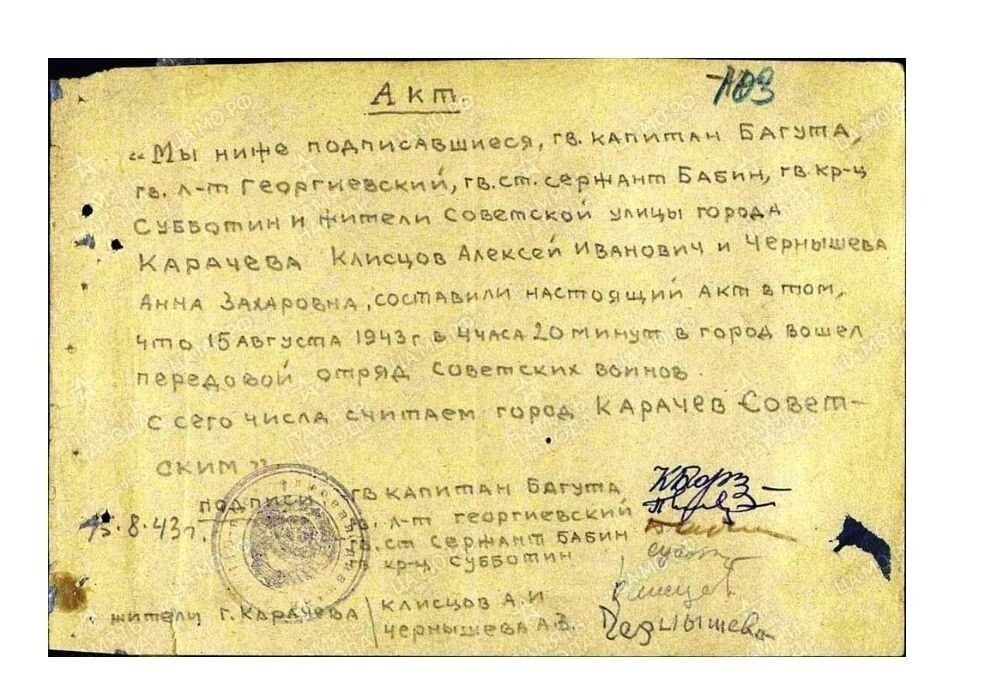 Акт.
103
"Мы ниже подписавшиеся, гв. капитан Багута,
гв. л-т Георгиевский, гв. ст. сержант Бабин, гв. кр-ц
Субботин и жители Советской улицы города
Карачева Клисцов Алексей Иванович и Чернышева
Анна Захаровна, составили настоящий акт в том,
что 15 августа 1943 г в 4 часа 20 минут в город вошел
передовой отряд Советских воинов.
С сего числа считаем город Карачев Совет-
ским"
подписи гв капитан Багута
15.8.43 г. гв. л-т Георгиевский
гв. ст сержант Бабин
гв кр-ц Субботин
Клисцов
жители г. Карачева Клисцов А.И
Чернышева А.З.
Чернышева